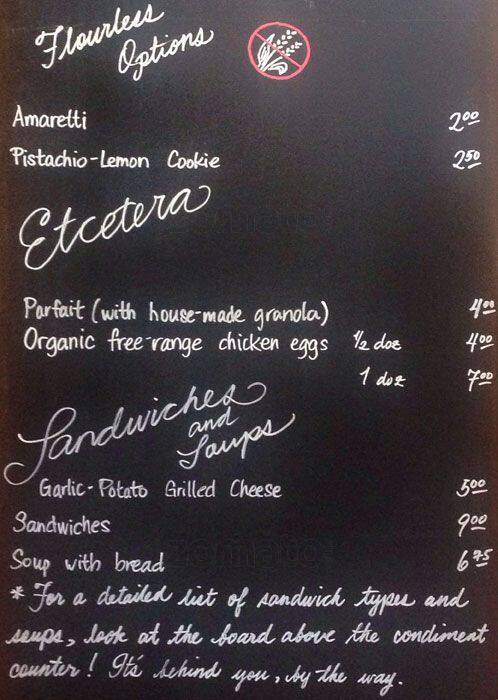 Flourless
Options
Amaretti 2.00
Pistachio-Lemon Cookie 2.50
Etcetera
Parfait (with house-made granola) 4.00
Organic free-range chicken eggs 1/2 doz 4.00
1 doz 7.00
Sandwiches
and
Soups
Garlic-Potato Grilled Cheese 5.00
Sandwiches 9.00
Soup with bread 6.75
* For a detailed list of sandwich types and
soups, look at the board above the condiment
counter! It's behind you, by the way.